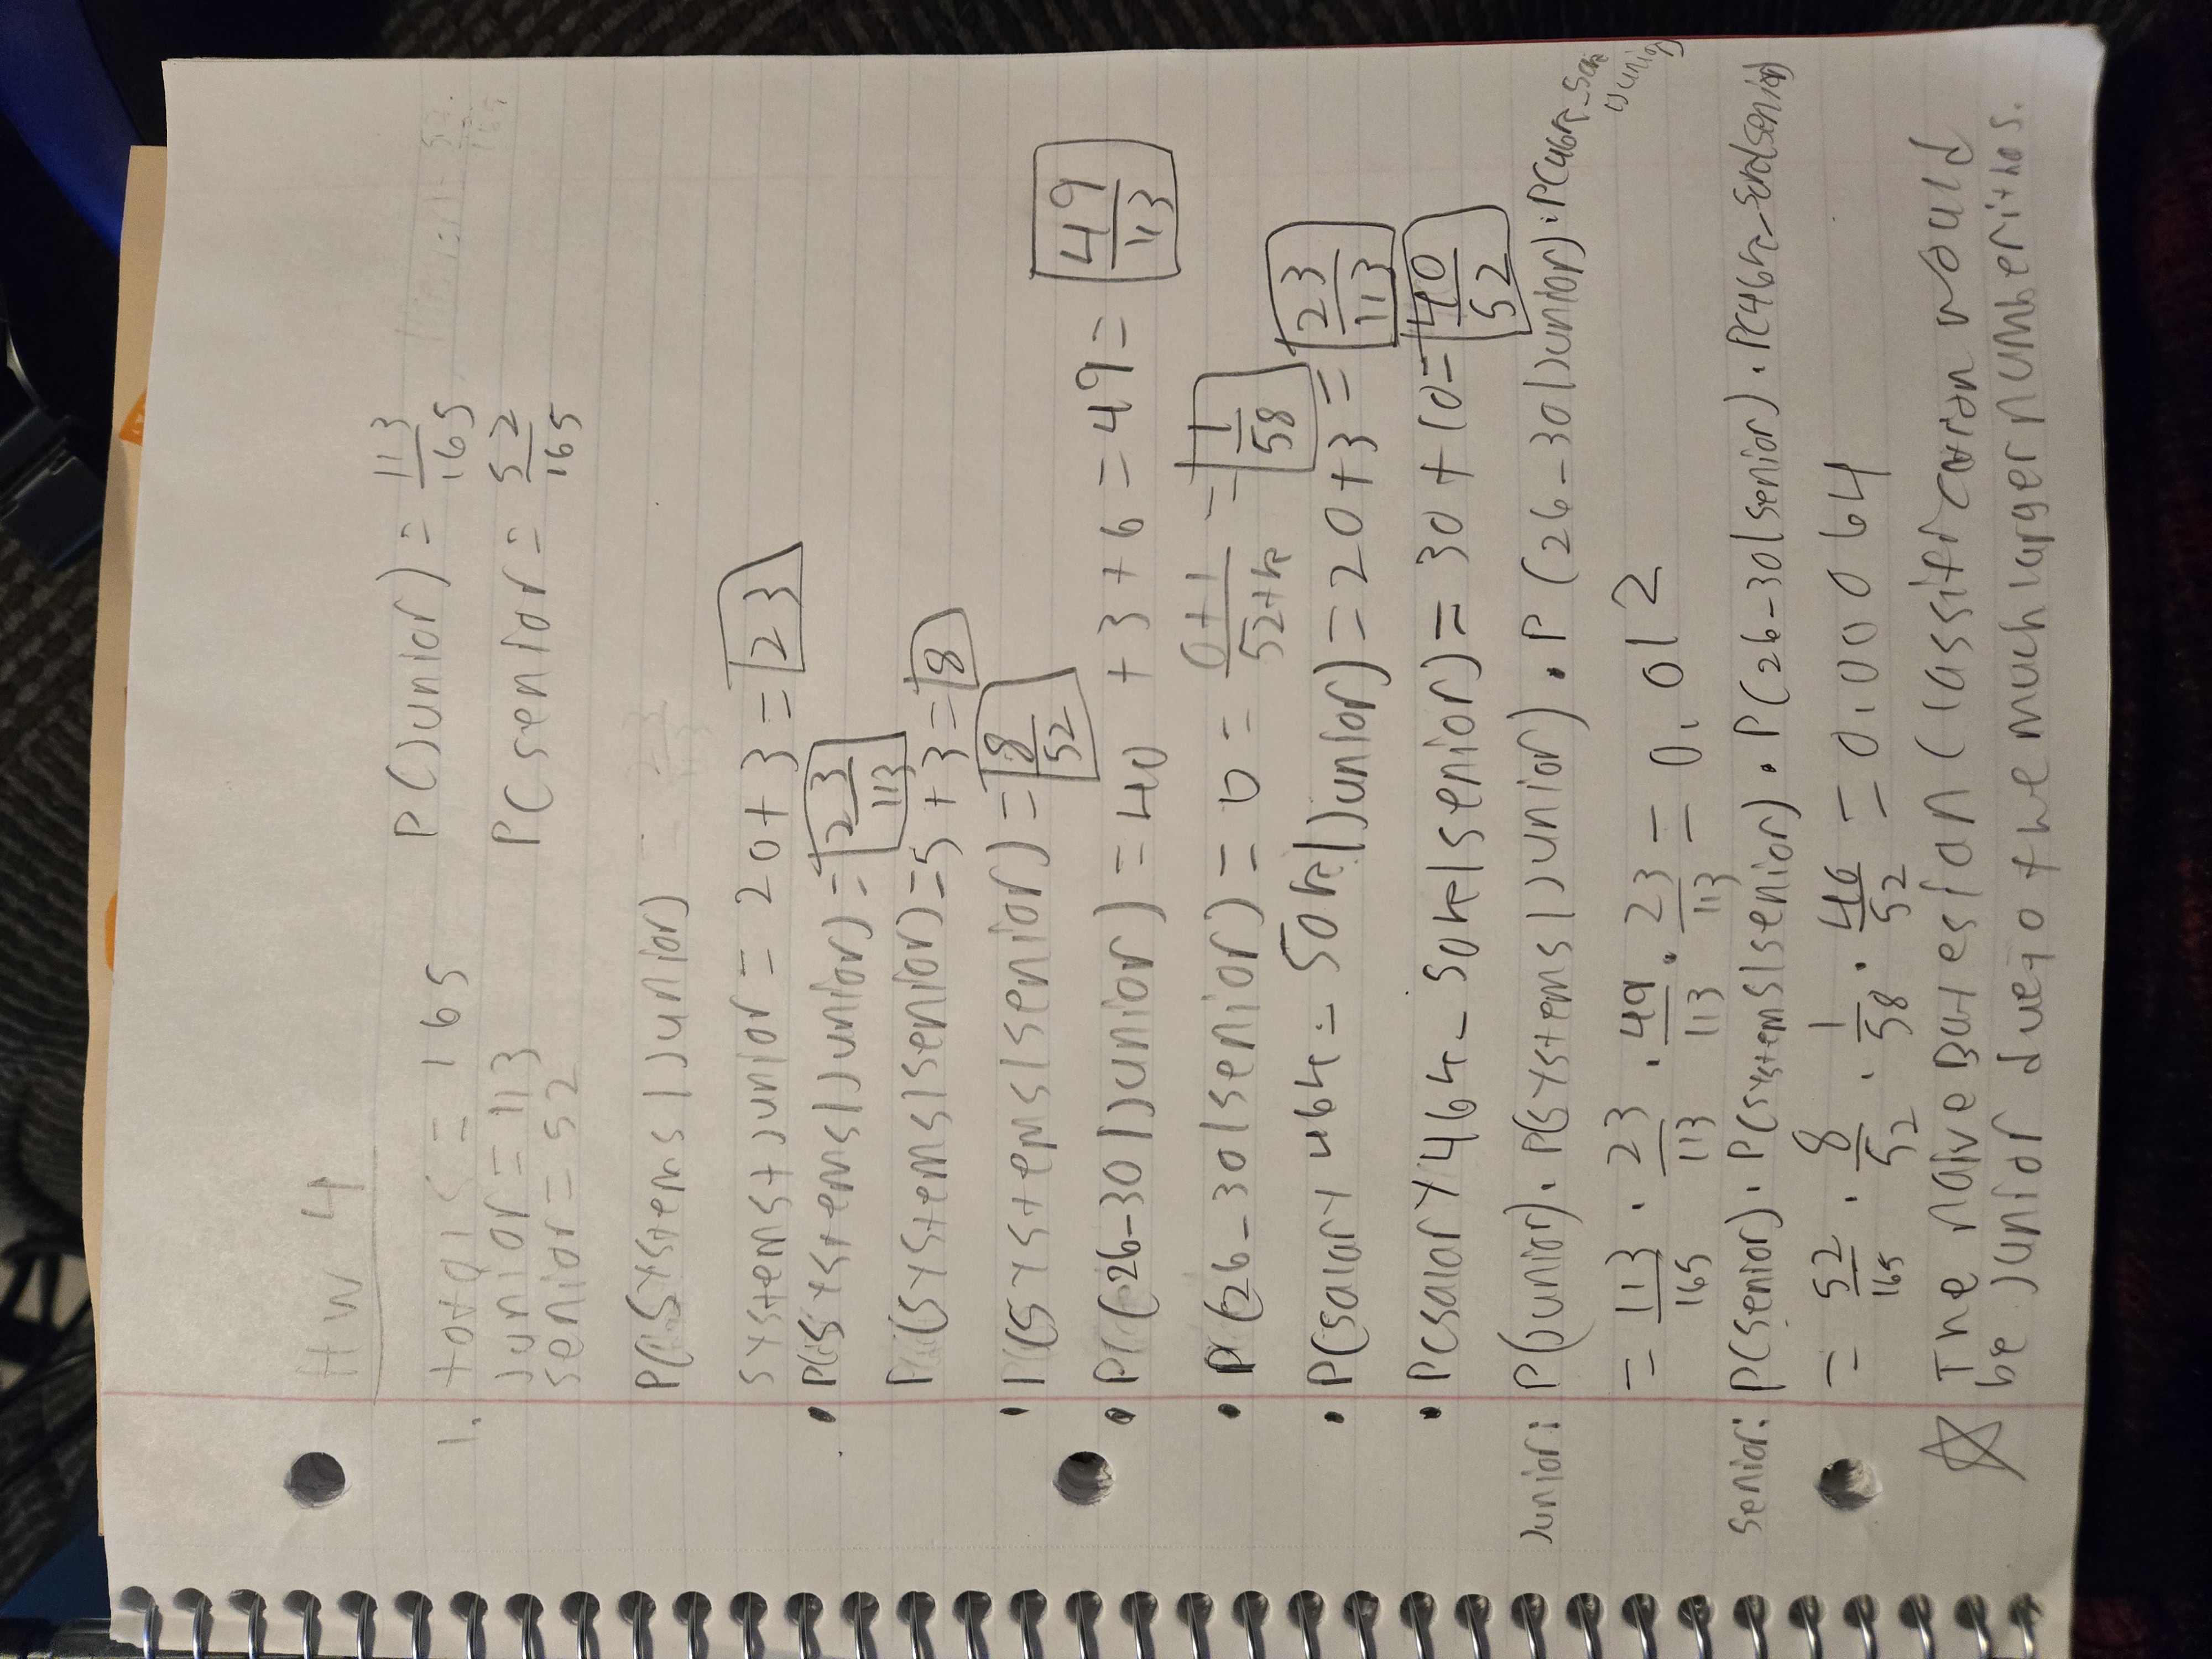 HW 4
1. totals = 165
junior = 113
senior = 52
P(Junior) = 113/165
P(senior = 52/165
P(Systems|Junior)
systems+Junior = 20+3 = 23
• P(Systems|Junior) = 23/113
P(systems|senior) = 5+3 = 8
• P(systems|senior) = 8/52
• P(26-30|Junior) = 40 + 3 + 6 = 49 = 49/113
• P(26-30|senior) = 0 = 0+1/52+k = 1/58
• P(salary 46k - 50k|Junior) = 20+3 = 23/113
• P(salary 46k - 50k|senior) = 30+10 = 40/52
Junior: P(Junior) · P(systems|Junior) · P(26-30|Junior) · P(46k-50k|Junior)
= 113/165 · 23/113 · 49/113 · 23/113 = 0.012
Senior: P(senior) · P(systems|senior) · P(26-30|senior) · P(46k-50k|senior)
= 52/165 · 8/52 · 1/58 · 40/52 = 0.00064
☆ The naive Bayesian Classification would
be Junior due to the much larger number it has.